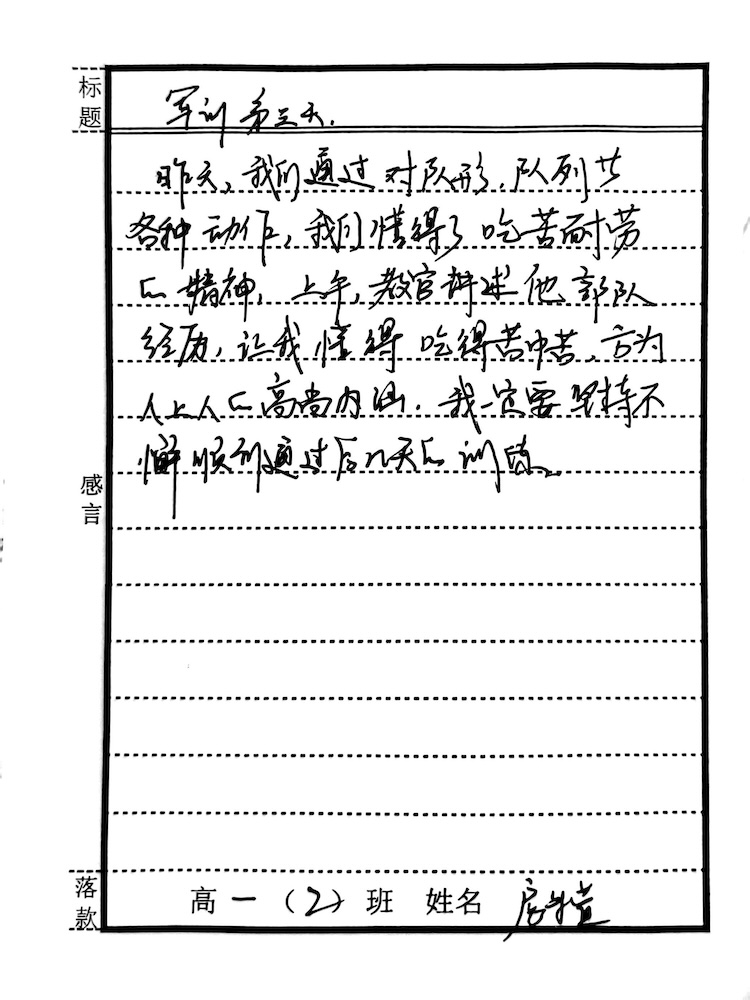 标题
军训第三天.
昨天,我们通过对队形,队列廿
各种动作,我们懂得了吃苦而耐劳
的精神,上午,教官讲述他部队
经历,让我懂得吃得苦中苦,方为
人上人的高尚内涵.我一定要坚持不
懈顺利通过后几天的训练。
感言
落款
高一(2)班 姓名 房